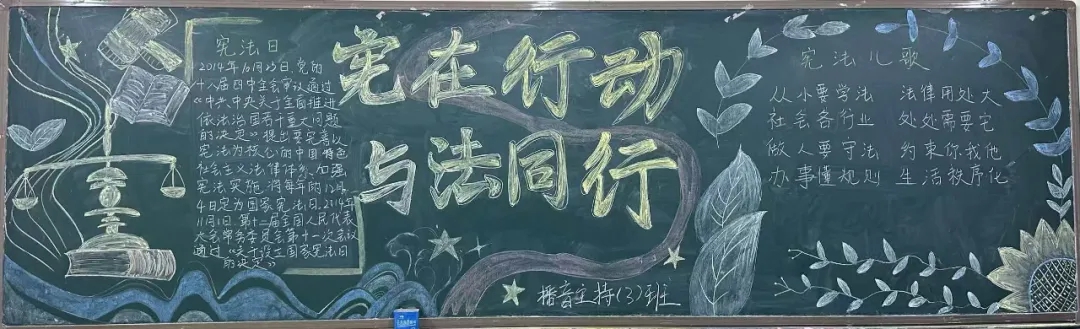 宪法日
2014年10月23日,党的
十八届四中全会审议通过
《中共中央关于全面推进
依法治国若干重大问题
的决定》提出要完善以
宪法为核心的中国特色
社会主义法律体系,加强
宪法实施,将每年的12月
4日定为国家宪法日,2014年
11月1日,第十二届全国人民代表
大会常务委员会第十一次会议
通过《关于设立国家宪法日
的决定》
宪在行动
与法同行
播音主持(3)班
宪法儿歌
从小要学法 法律用处大
社会各行业 处处需要它
做人要守法 约束你我他
办事懂规则 生活秩序化